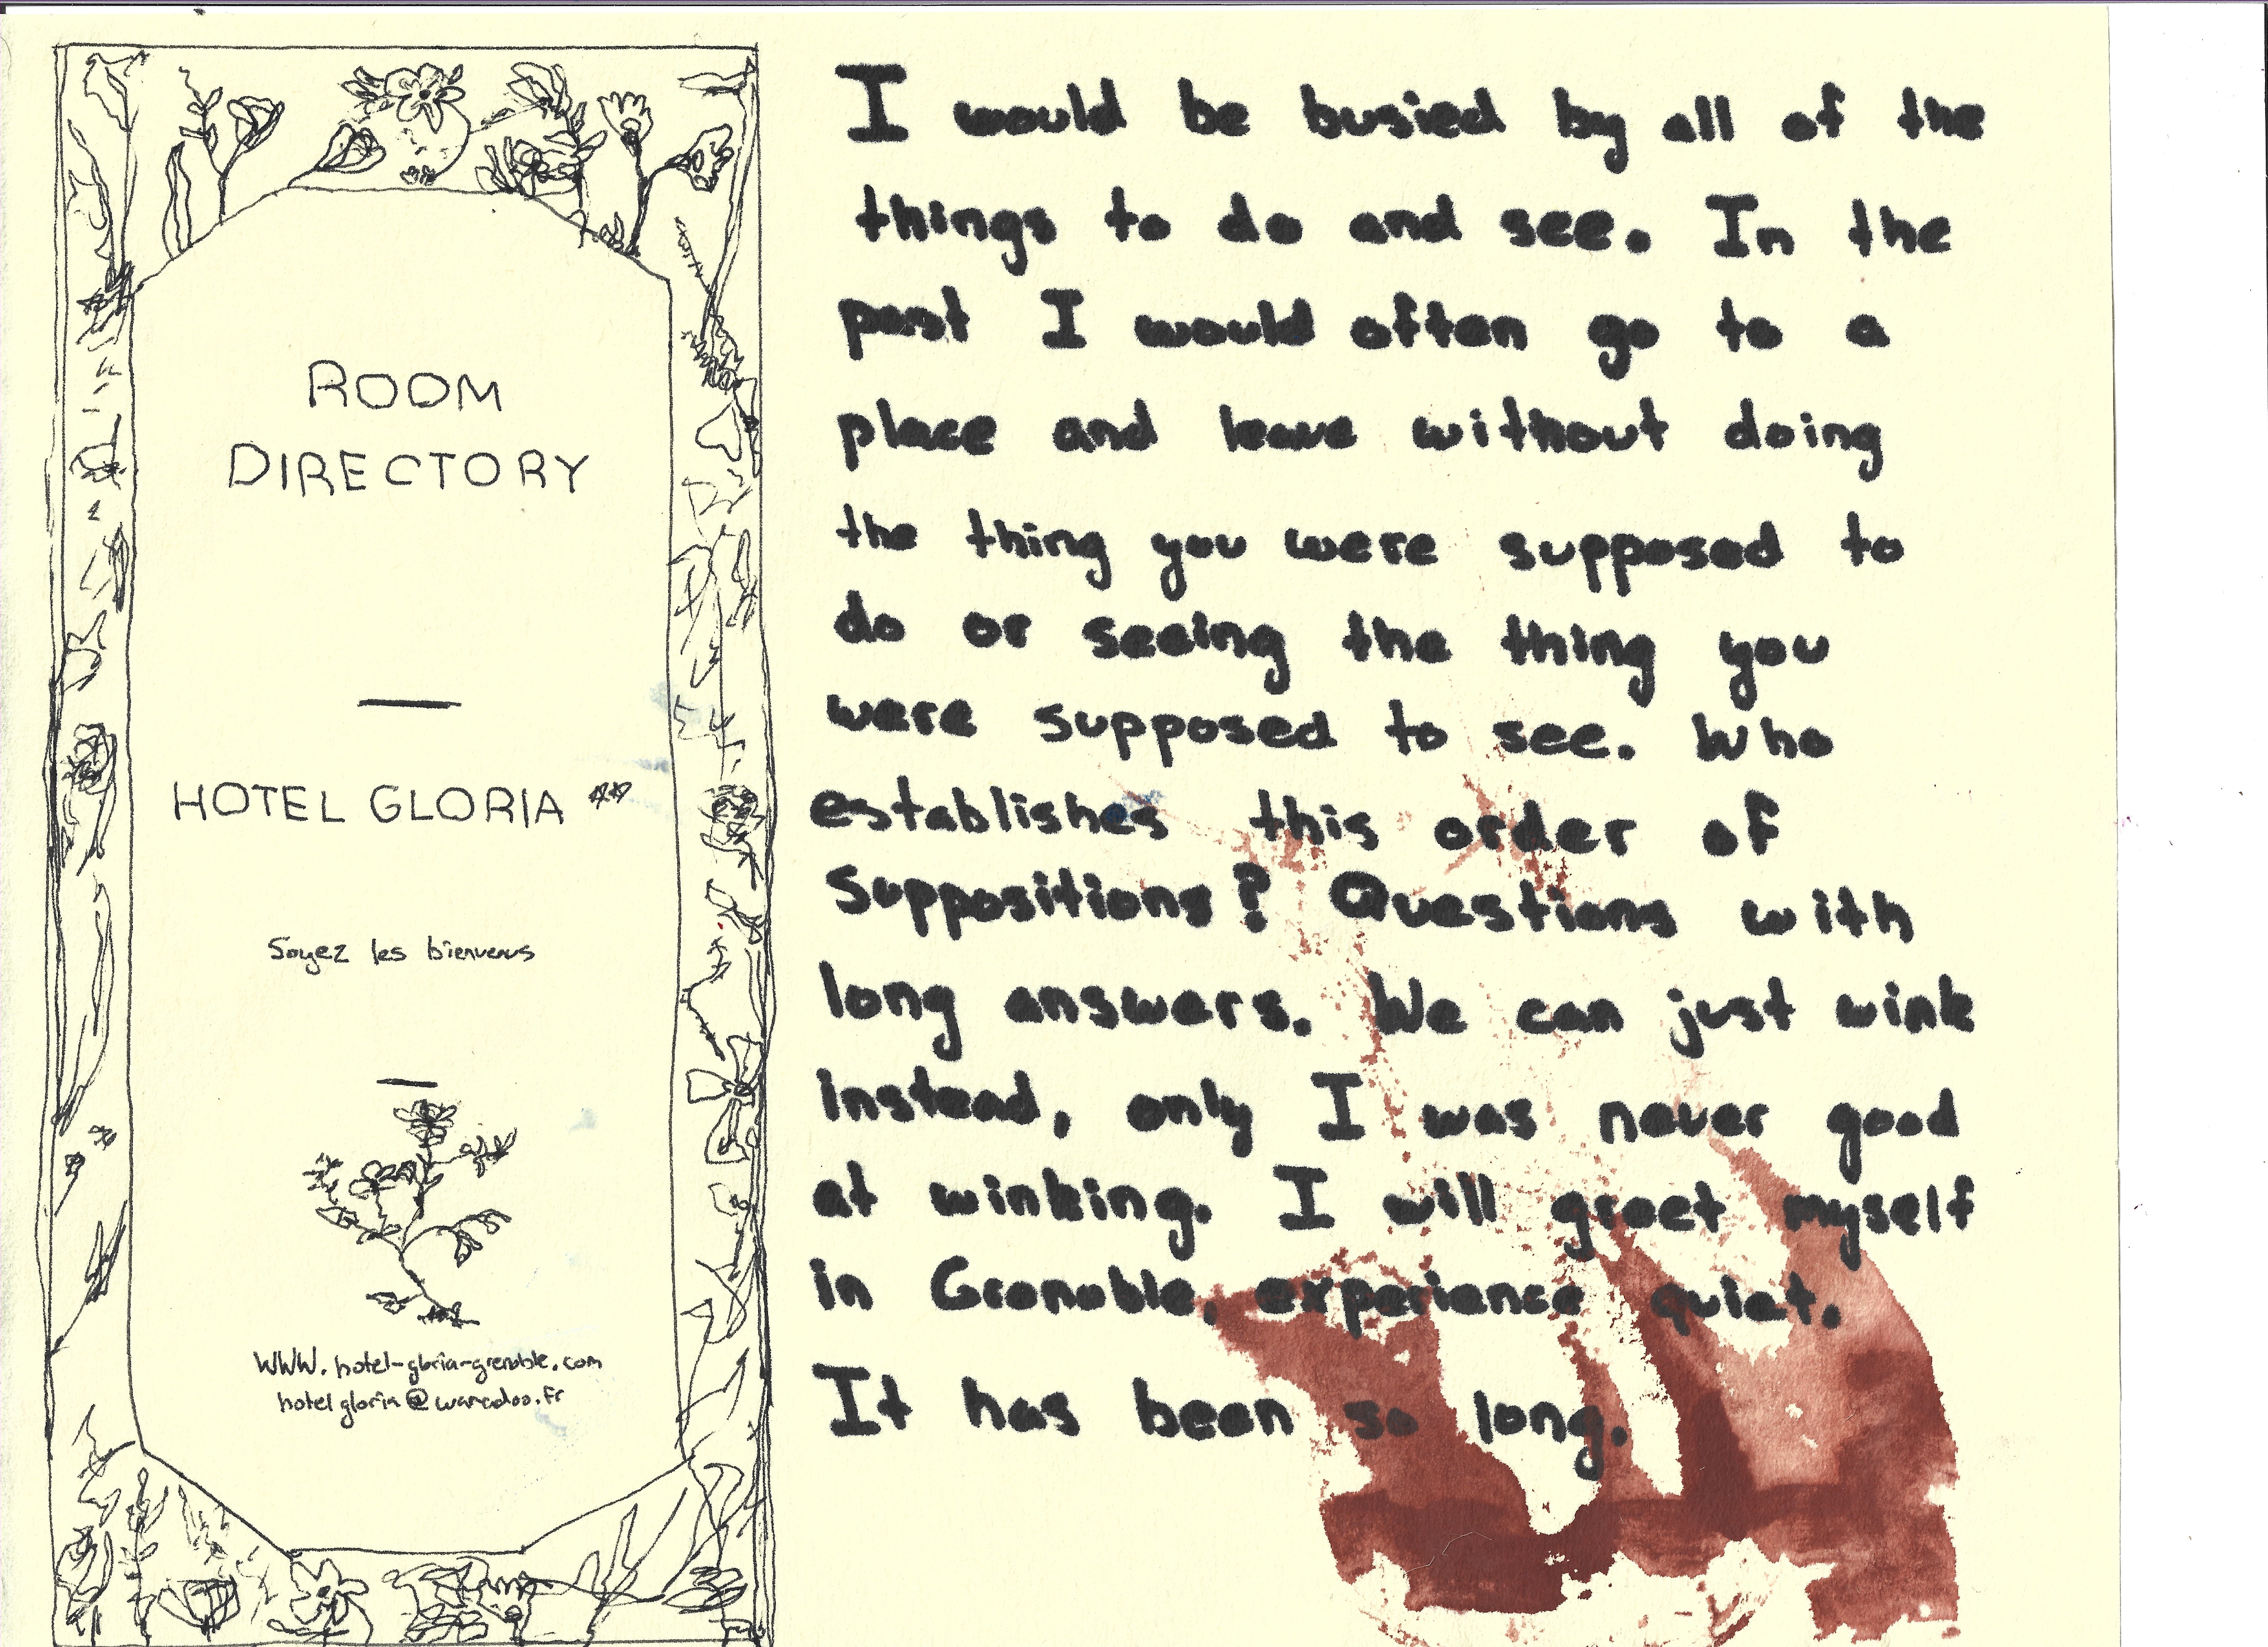 ROOM
DIRECTORY
HOTEL GLORIA **
Soyez les bienvenus
WWW.hotel-gloria-grenoble.com
hotelgloria@wanadoo.fr
I would be busied by all of the
things to do and see. In the
past I would often go to a
place and leave without doing
the thing you were supposed to
do or seeing the thing you
were supposed to see. Who
establishes this order of
Suppositions? Questions with
long answers. We can just wink
instead, only I was never good
at winking. I will greet myself
in Grenoble, experience quiet.
It has been so long.